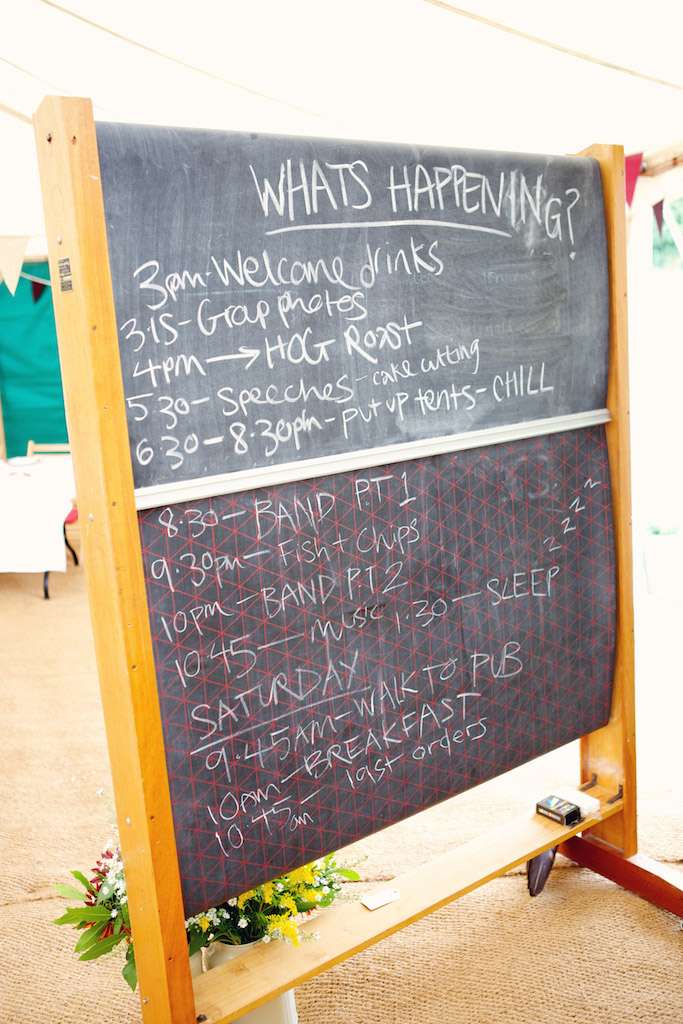 WHATS HAPPENING?
3pm-Welcome drinks
3.15-Group photos
4pm → HOG ROAST
5.30-Speeches-cake cutting
6.30-8.30pm-put up tents-CHILL
8.30-BAND PT 1
9.30pm-Fish+Chips
10pm-BAND PT 2
10.45-music 1.30-SLEEP zzzz
SATURDAY
9.45AM-WALK TO PUB
10am-BREAKFAST
10.45am-last orders